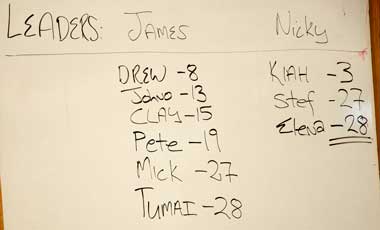 LEADERS: JAMES Nicky
DREW -8 KIAH -3
Johno -13 Stef -27
CLAY -15 Elena -28
Pete -19
MICK -27
TUMAI -28